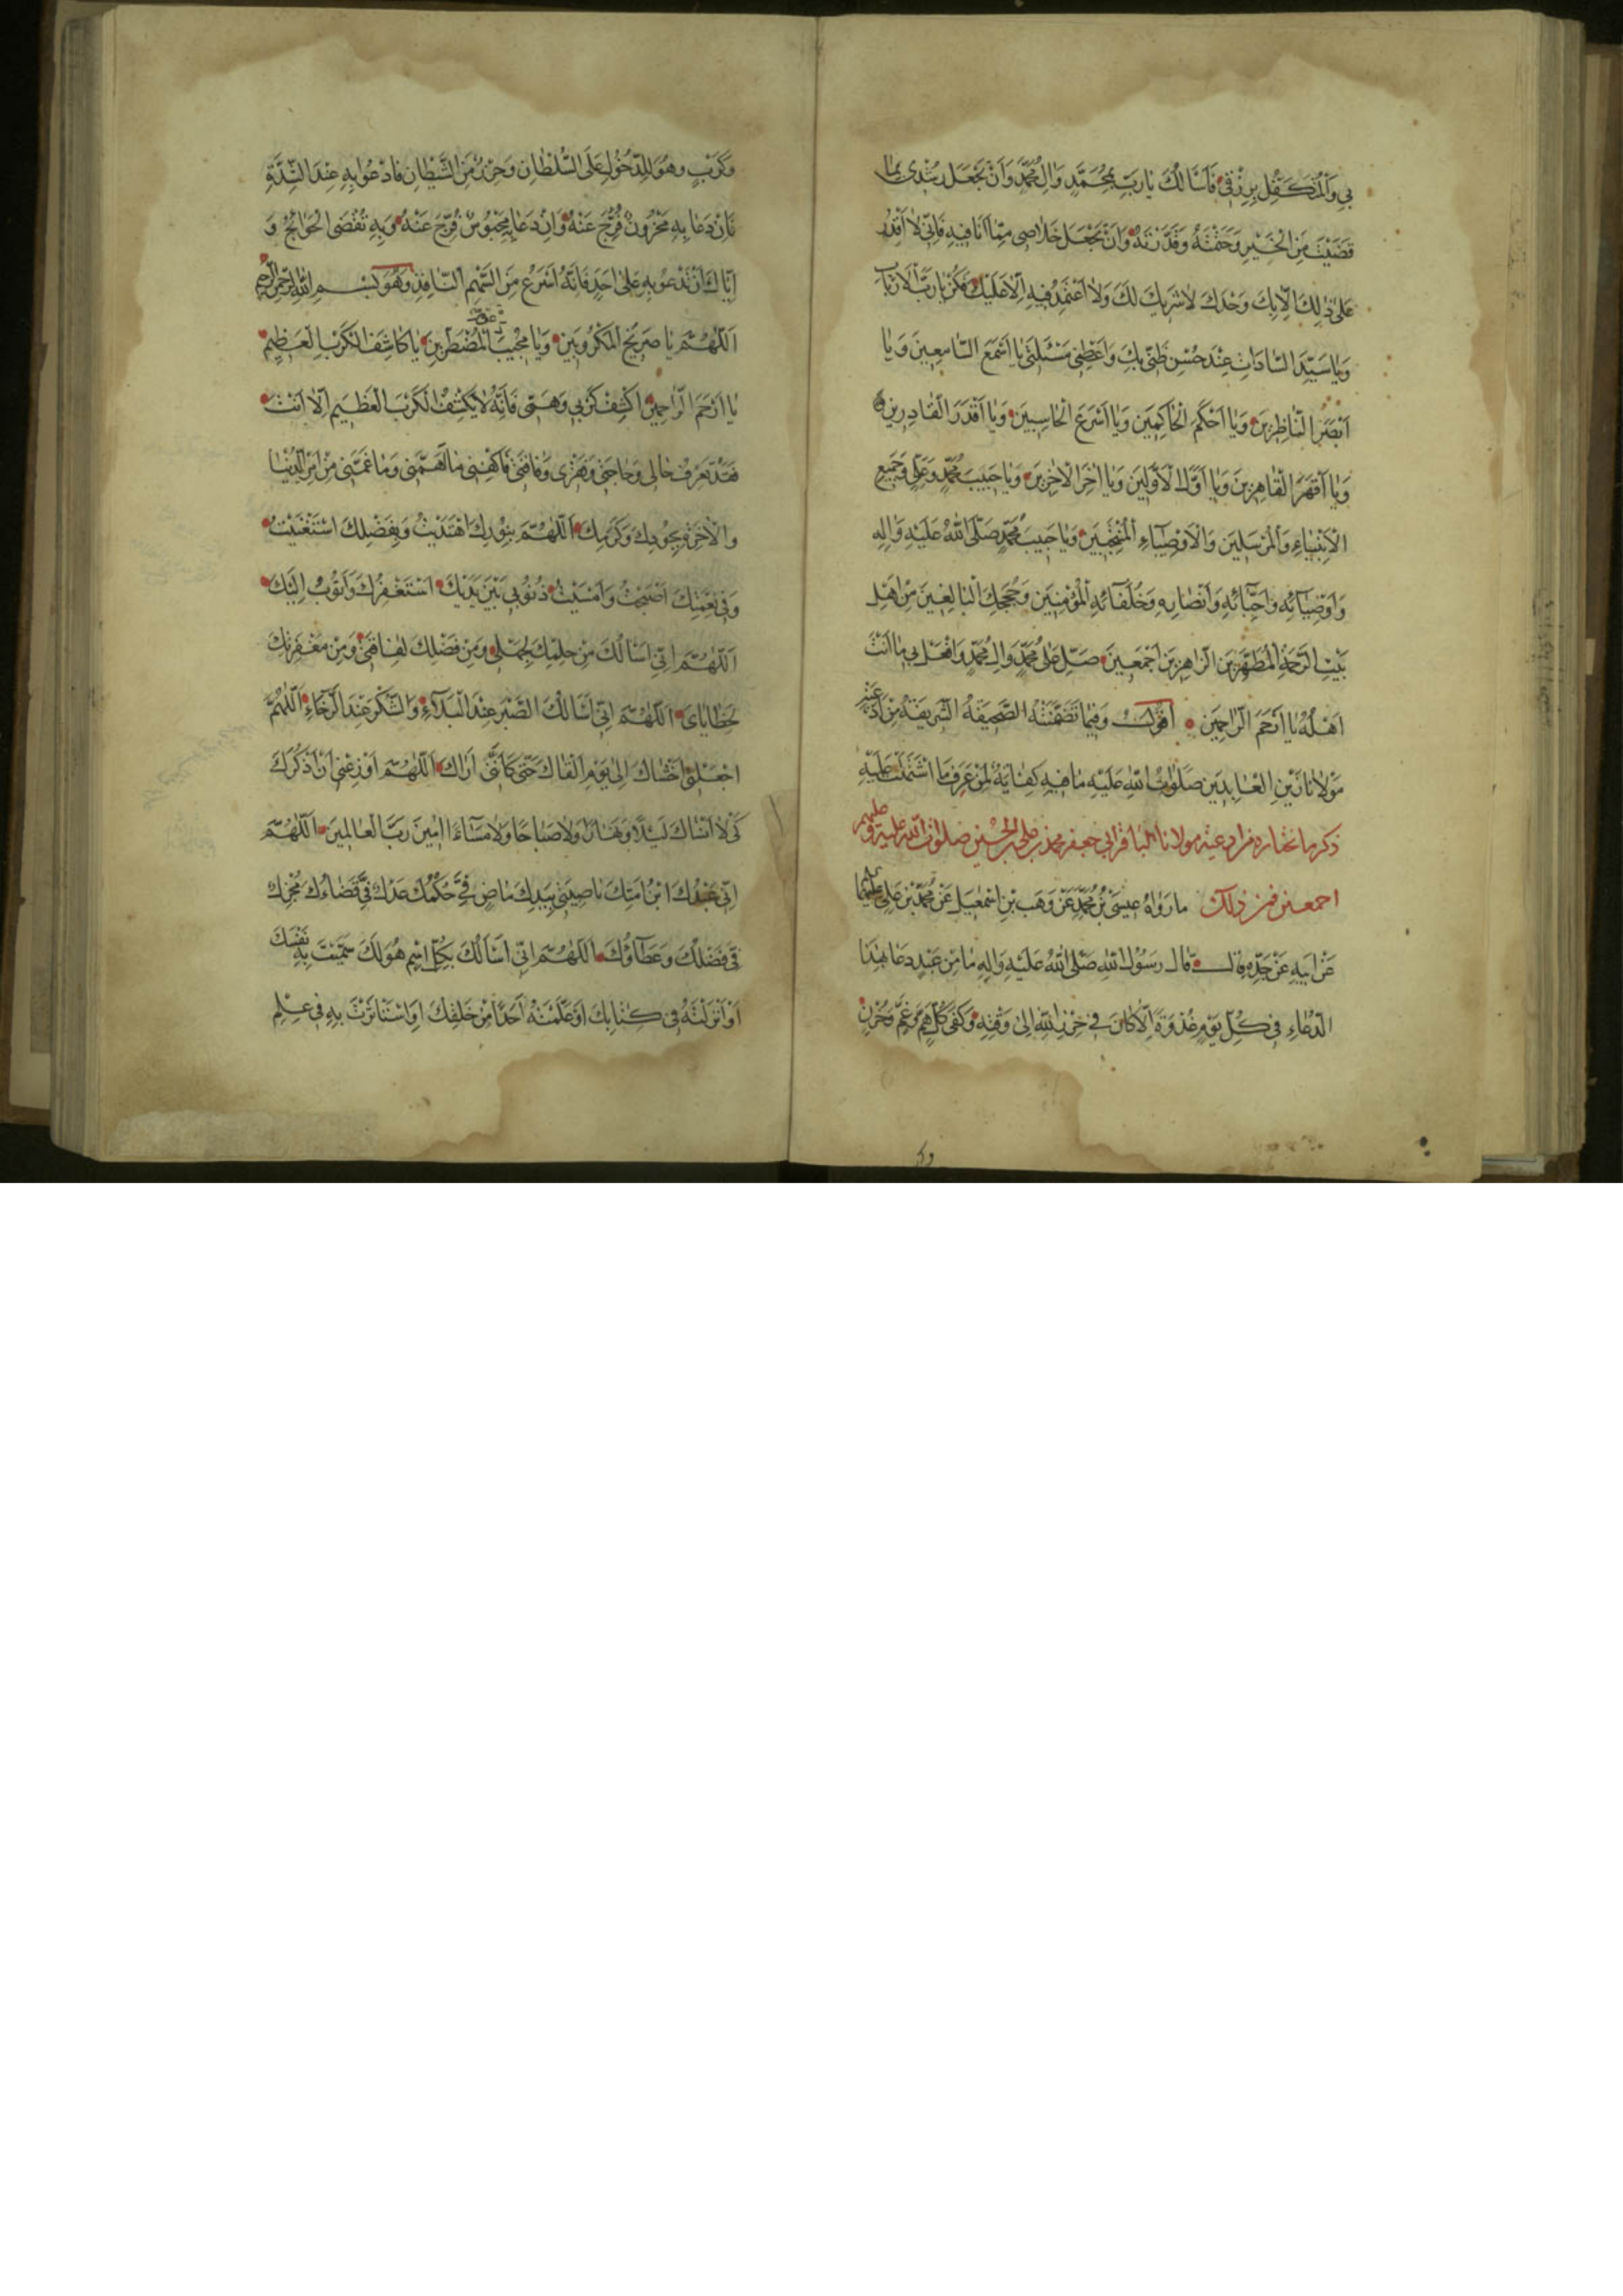 بِي وَلَمْ تَكَفَّلْ بِرِزْقِي فَأَسْأَلُكَ يَا رَبِّ بِمُحَمَّدٍ وَآلِ مُحَمَّدٍ وَأَنْ تَجْعَلَ رُشْدِي بِمَا
قَضَيْتَ مِنَ الْخَيْرِ وَحَتَمْتَهُ وَقَدَّرْتَهُ وَأَنْ تَجْعَلَ خَلَاصِي مِمَّا أَنَا فِيهِ فَإِنِّي لَا أَقْدِرُ
عَلَى ذَلِكَ إِلَّا بِكَ وَحْدَكَ لَا شَرِيكَ لَكَ وَلَا أَعْتَمِدُ فِيهِ إِلَّا عَلَيْكَ فَكُنْ يَا رَبَّ الْأَرْبَابِ
وَيَا سَيِّدَ السَّادَاتِ عِنْدَ حُسْنِ ظَنِّي بِكَ وَأَعْطِنِي مَسْئَلَتِي يَا أَسْمَعَ السَّامِعِينَ وَيَا
أَبْصَرَ النَّاظِرِينَ وَيَا أَحْكَمَ الْحَاكِمِينَ وَيَا أَسْرَعَ الْحَاسِبِينَ وَيَا أَقْدَرَ الْقَادِرِينَ
وَيَا أَقْهَرَ الْقَاهِرِينَ وَيَا أَوَّلَ الْأَوَّلِينَ وَيَا آخِرَ الْآخِرِينَ وَيَا حَبِيبَ مُحَمَّدٍ وَعَلِيٍّ وَجَمِيعِ
الْأَنْبِيَاءِ وَالْمُرْسَلِينَ وَالْأَوْصِيَاءِ الْمُنْتَجَبِينَ وَيَا حَبِيبَ مُحَمَّدٍ صَلَّى اللهُ عَلَيْهِ وَآلِهِ
وَأَوْصِيَائِهِ وَأَحِبَّائِهِ وَأَنْصَارِهِ وَخُلَفَائِهِ الْمُؤْمِنِينَ وَحُجَجِكَ الْبَالِغِينَ مِنْ أَهْلِ
بَيْتِ الرَّحْمَةِ الْمُطَهَّرِينَ الزَّاهِرِينَ أَجْمَعِينَ صَلِّ عَلَى مُحَمَّدٍ وَآلِ مُحَمَّدٍ وَافْعَلْ بِي مَا أَنْتَ
أَهْلُهُ يَا أَرْحَمَ الرَّاحِمِينَ أَقُولُ وَفِيمَا تَضَمَّنَتْهُ الصَّحِيفَةُ الشَّرِيفَةُ مِنْ أَدْعِيَةِ
مَوْلَانَا زَيْنِ الْعَابِدِينَ صَلَوَاتُ اللهِ عَلَيْهِ مَا فِيهِ كِفَايَةٌ لِمَنْ عَرَفَ مَا اشْتَمَلَتْ عَلَيْهِ
ذكر ما نختاره من ادعية مولانا الباقر ابي جعفر محمد بن علي بن الحسين صلوات الله عليه وعليهم
اجمعين فمن ذلك مَا رَوَاهُ عِيسَى بْنُ مُحَمَّدٍ عَنْ وَهَبِ بْنِ إِسْمَعِيلَ عَنْ مُحَمَّدِ بْنِ عَلِيٍّ عَلَيْهِمَا
عَنْ أَبِيهِ عَنْ جَدِّهِ قَالَ قَالَ رَسُولُ اللهِ صَلَّى اللهُ عَلَيْهِ وَآلِهِ مَا مِنْ عَبْدٍ دَعَا بِهَذَا
الدُّعَاءِ فِي كُلِّ يَوْمٍ غُدْوَةً إِلَّا كَانَ فِي حِرْزِ اللهِ إِلَى وَقْتِهِ وَكُفِيَ كُلَّ هَمٍّ وَغَمٍّ وَحُزْنٍ
وكر
وَكَرْبٍ وَهُوَ لِلدُّخُولِ عَلَى السُّلْطَانِ وَحِرْزٌ مِنَ الشَّيْطَانِ فَادْعُوا بِهِ عِنْدَ الشِّدَّةِ
فَإِنْ دَعَا بِهِ مَحْزُونٌ فُرِّجَ عَنْهُ وَإِنْ دَعَا بِهِ مَحْبُوسٌ فُرِّجَ عَنْهُ وَبِهِ تُقْضَى الْحَوَائِجُ وَ
إِيَّاكَ أَنْ تَدْعُوَ بِهِ عَلَى أَحَدٍ فَإِنَّهُ أَسْرَعُ مِنَ السَّهْمِ النَّافِذِ وَهُوَ بِسْمِ اللهِ الرَّحْمَنِ الرَّحِيمِ
اللَّهُمَّ يَا صَرِيخَ الْمَكْرُوبِينَ وَيَا مُجِيبَ الْمُضْطَرِّينَ يَا كَاشِفَ الْكَرْبِ الْعَظِيمِ
يَا أَرْحَمَ الرَّاحِمِينَ اكْشِفْ كَرْبِي وَهَمِّي فَإِنَّهُ لَا يَكْشِفُ الْكَرْبَ الْعَظِيمَ إِلَّا أَنْتَ
فَقَدْ تَعْرِفُ حَالِي وَحَاجَتِي وَفَقْرِي وَفَاقَتِي فَاكْفِنِي مَا أَهَمَّنِي وَمَا غَمَّنِي مِنْ أَمْرِ الدُّنْيَا
وَالْآخِرَةِ بِجُودِكَ وَكَرَمِكَ اللَّهُمَّ بِنُورِكَ اهْتَدَيْتُ وَبِفَضْلِكَ اسْتَغْنَيْتُ
وَفِي نِعْمَتِكَ أَصْبَحْتُ وَأَمْسَيْتُ ذُنُوبِي بَيْنَ يَدَيْكَ أَسْتَغْفِرُكَ وَأَتُوبُ إِلَيْكَ
اللَّهُمَّ إِنِّي أَسْأَلُكَ مِنْ حِلْمِكَ لِجَهْلِي وَمِنْ فَضْلِكَ لِفَاقَتِي وَمِنْ مَغْفِرَتِكَ
لِخَطَايَايَ اللَّهُمَّ إِنِّي أَسْأَلُكَ الصَّبْرَ عِنْدَ الْبَلَاءِ وَالشُّكْرَ عِنْدَ الرَّخَاءِ اللَّهُمَّ
اجْعَلْنِي أَخْشَاكَ إِلَى يَوْمِ أَلْقَاكَ حَتَّى كَأَنَّنِي أَرَاكَ اللَّهُمَّ أَوْزِعْنِي أَنْ أَذْكُرَكَ
كَيْ لَا أَنْسَاكَ لَيْلًا وَنَهَارًا وَلَا صَبَاحًا وَلَا مَسَاءً آمِينَ رَبَّ الْعَالَمِينَ اللَّهُمَّ
إِنِّي عَبْدُكَ ابْنُ أَمَتِكَ نَاصِيَتِي بِيَدِكَ مَاضٍ فِيَّ حُكْمُكَ عَدْلٌ فِيَّ قَضَاؤُكَ
فِيَّ فَضْلُكَ وَعَطَاؤُكَ اللَّهُمَّ إِنِّي أَسْأَلُكَ بِكُلِّ اسْمٍ هُوَ لَكَ سَمَّيْتَ بِهِ نَفْسَكَ
أَوْ أَنْزَلْتَهُ فِي كِتَابِكَ أَوْ عَلَّمْتَهُ أَحَدًا مِنْ خَلْقِكَ أَوِ اسْتَأْثَرْتَ بِهِ فِي عِلْمِ